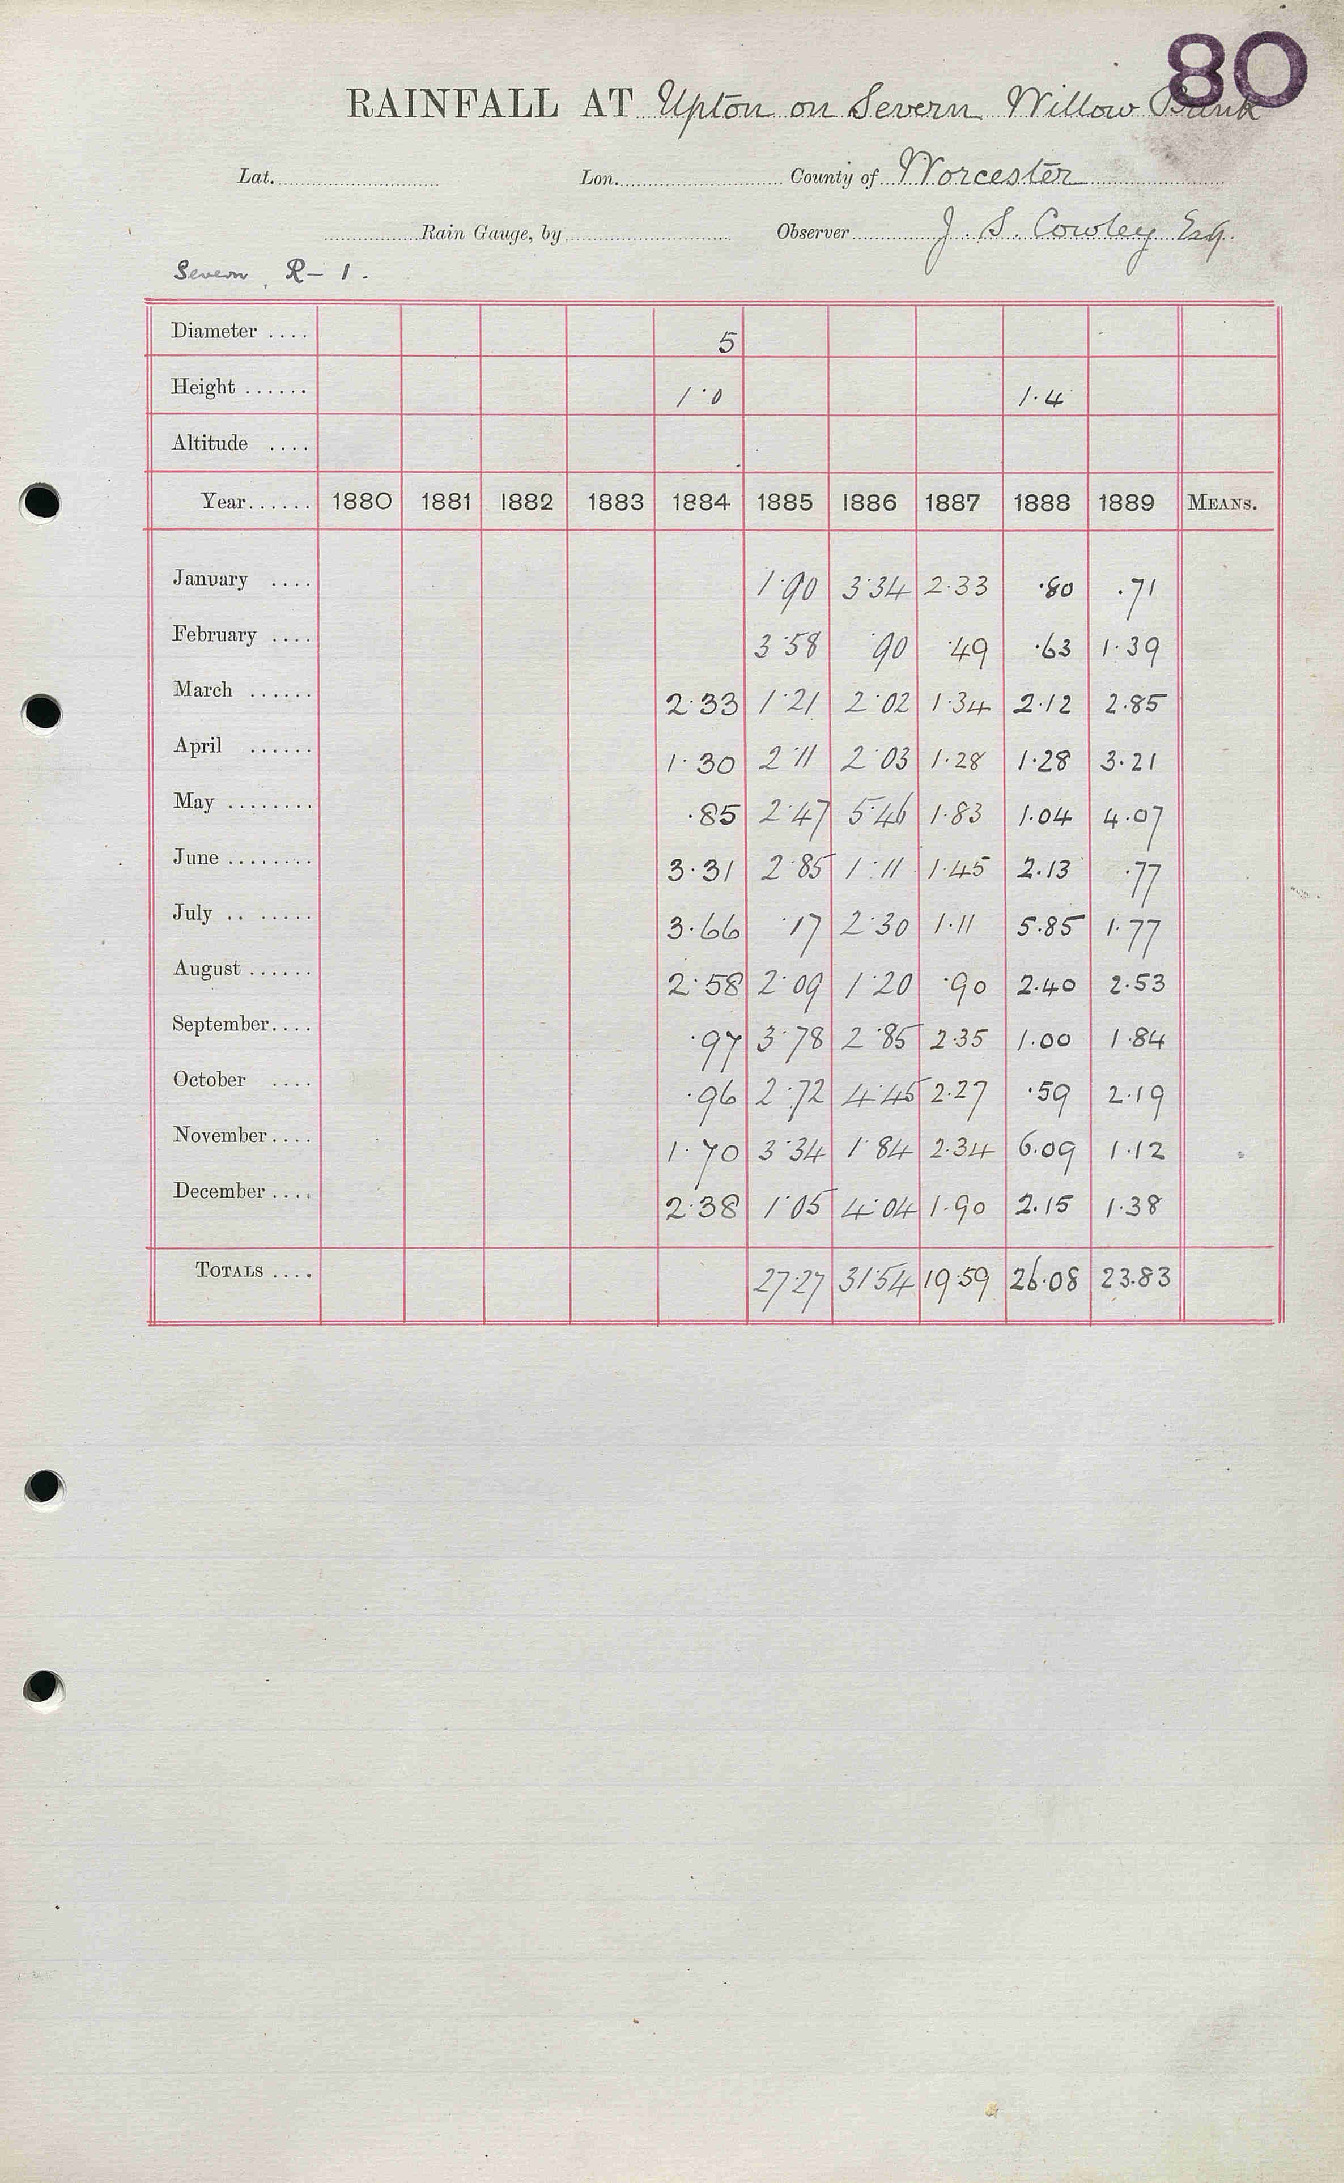 80
RAINFALL AT Upton on Severn Willow Bank
Lat. Lon. County of Worcester
Rain Gauge, by Observer J. S. Cowley Esq.
Severn R - 1.
Diameter .... 5
Height ...... 1·0 1·4
Altitude ....
Year...... 1880 1881 1882 1883 1884 1885 1886 1887 1888 1889 MEANS.
January .... 1·90 3·34 2·33 ·80 ·71
February .... 3·58 ·90 ·49 ·63 1·39
March ...... 2·33 1·21 2·02 1·34 2·12 2·85
April ...... 1·30 2·11 2·03 1·28 1·28 3·21
May ........ ·85 2·47 5·46 1·83 1·04 4·07
June ........ 3·31 2·85 1·11 1·45 2·13 ·77
July .. ..... 3·66 ·17 2·30 1·11 5·85 1·77
August ...... 2·58 2·09 1·20 ·90 2·40 2·53
September.... ·97 3·78 2·85 2·35 1·00 1·84
October .... ·96 2·72 4·45 2·27 ·59 2·19
November.... 1·70 3·34 1·84 2·34 6·09 1·12
December .... 2·38 1·05 4·04 1·90 2·15 1·38
TOTALS .... 27·27 31·54 19·59 26·08 23·83